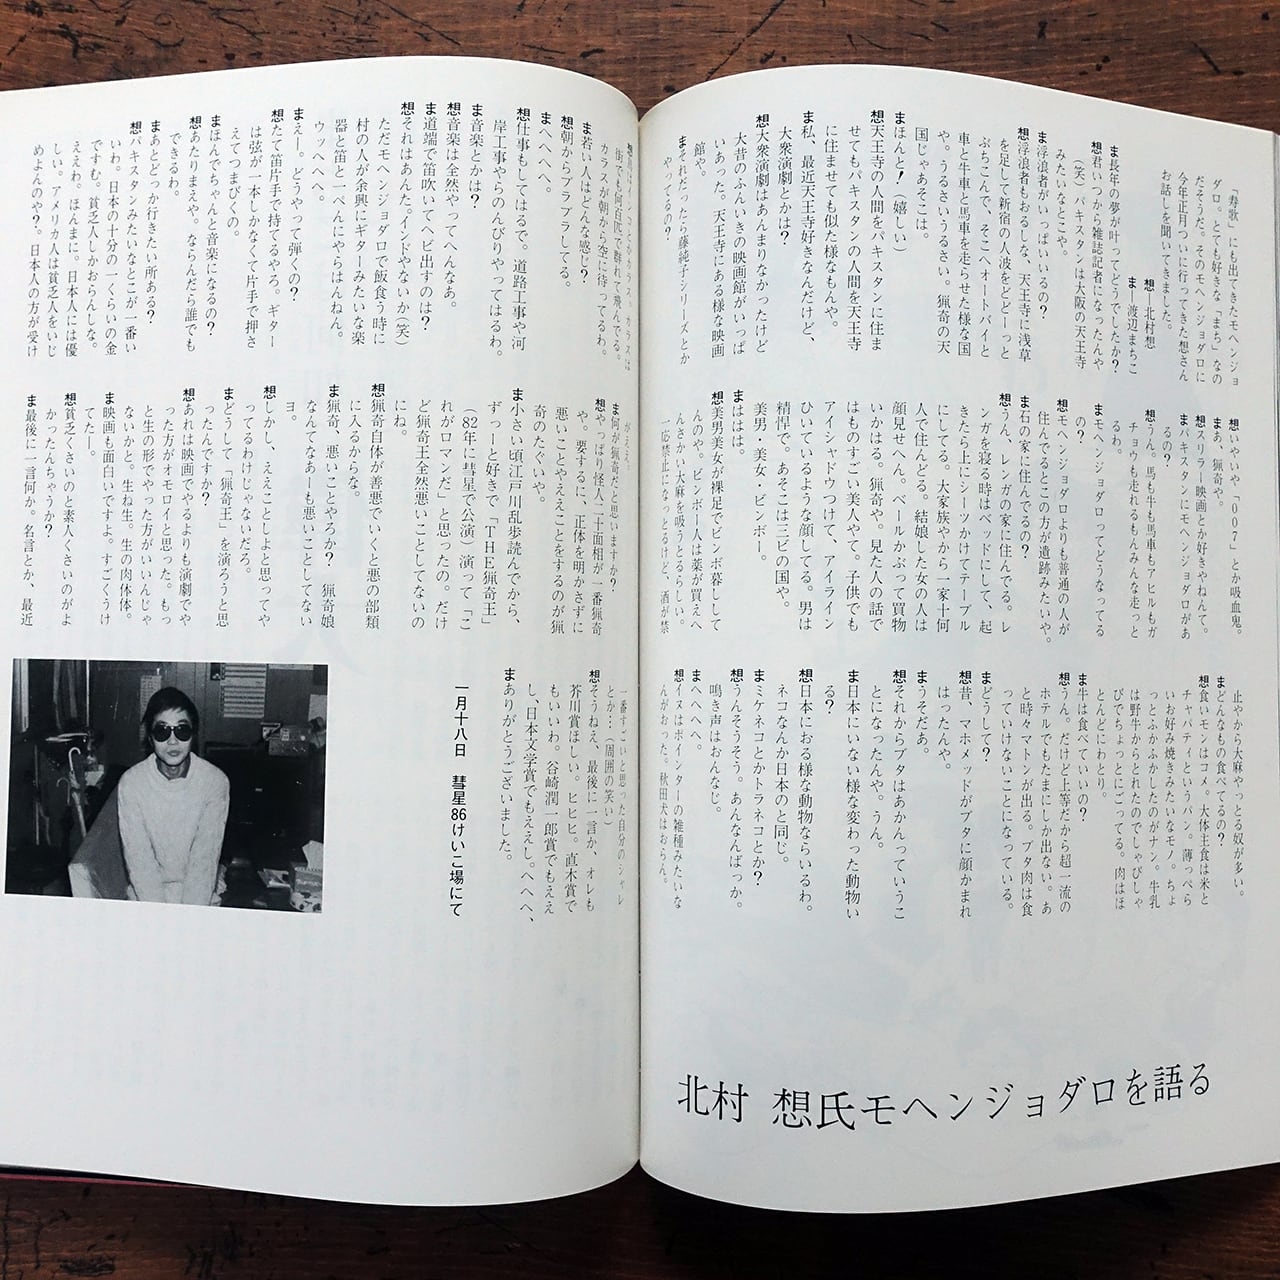 北村 想氏モヘンジョダロを語る
「寿歌」にも出てきたモヘンジョ
ダロ。とても好きな「まち」なの
だそうだ。そのモヘンジョダロに
今年正月ついに行ってきた想さん
にお話しを聞いてきました。
想―北村想
ま―渡辺まちこ
ま長年の夢が叶ってどうでしたか?
想君いつから雑誌記者になったんや
(笑)パキスタンは大阪の天王寺
みたいなとこや。
ま浮浪者がいっぱいいるの?
想浮浪者もおるしな、天王寺に浅草
を足して新宿の人波をどどーっと
ぶちこんで、そこへオートバイと
車と牛車と馬車を走らせた様な国
や。うるさいうるさい。猟奇の天
国じゃあそこは。
まほんと!嬉しい)
想天王寺の人間をパキスタンに住ま
せてもパキスタンの人間を天王寺
に住ませても似た様なもんや。
ま私、最近天王寺好きなんだけど、
大衆演劇とかは?
想大衆演劇はあんまりなかったけど
大昔のふんいきの映画館がいっぱ
いあった。天王寺にある様な映画
館や。
まそれだったら藤純子シリーズとか
やってるの?
想いやいや「007」とか吸血鬼。
まあ、猟奇や。
想スリラー映画とか好きやねんて。
まパキスタンにモヘンジョダロがあ
るの?
想うん。馬も牛も馬車もアヒルもガ
チョウも走れるもんみんな走っと
るわ。
まモヘンジョダロってどうなってる
の?
想モヘンジョダロよりも普通の人が
住んでるとこの方が遺跡みたいや。
ま石の家に住んでるの?
想うん、レンガの家に住んでる。レ
ンガを寝る時はベッドにして、起
きたら上にシーツかけてテーブル
にしてる。大家族やから一家十何
人で住んどる。結婚した女の人は
顔見せへん。ベールかぶって買物
いかはる。猟奇や。見た人の話で
はものすごい美人やて。子供でも
アイシャドウつけて、アイライン
ひいているような顔してる。男は
精悍で。あそこは三ビの国や。
美男・美女・ビンボー。
まははは。
想美男美女が裸足でビンボ暮しして
んのや。ビンボー人は薬が買えへ
んさかい大麻を吸うとるらしい。
一応禁止になっとるけど、酒が禁
止やから大麻やっとる奴が多い。
まどんなもの食べてるの?
想食いモンはコメ。大体主食は米と
チャパティというパン。薄っぺら
いお好み焼きみたいなモノ。ちょ
っとふかふかしたのがナン。牛乳
は野牛からとれたのでしゃびしゃ
びでちょっとにごってる。肉はほ
とんどにわとり。
ま牛は食べていいの?
想うん。だけど上等だから超一流の
ホテルでもたまにしか出ない。あ
と時々マトンが出る。ブタ肉は食
っていけないことになっている。
まどうして?
想昔、マホメッドがブタに顔かまれ
はったんや。
まうそだあ。
想それからブタはあかんっていうこ
とになったんや。うん。
ま日本にいない様な変わった動物い
る?
想日本におる様な動物ならいるわ。
ネコなんか日本のと同じ。
まミケネコとかトラネコとか?
想うんそうそう。あんなんばっか。
鳴き声はおんなじ。
まへへへへ。
想イヌはポインターの雑種みたいな
んがおった。秋田犬はおらん。
街でも何百匹で群れて飛んでる。
カラスが朝から空に待ってるわ。
ま若い人はどんな感じ?
想朝からブラブラしてる。
まへへへへ。
想仕事もしてはるで。道路工事や河
岸工事やらのんびりやってはるわ。
ま音楽とかは?
想音楽は全然やってへんなあ。
ま道端で笛吹いてヘビ出すのは?
想それはあんた。インドやないか(笑)
ただモヘンジョダロで飯食う時に
村の人が余興にギターみたいな楽
器と笛と一ぺんにやらはんねん。
ウヘヘヘヘ。
まえー。どうやって弾くの?
想たて笛片手で持てるやろ。ギター
は弦が一本しかなくて片手で押さ
えてつまびくの。
まほんでちゃんと音楽になるの?
想あたりまえや。ならんだら誰でも
できるわ。
まあとどっか行きたい所ある?
想パキスタンみたいなとこが一番い
いわ。日本の十分の一くらいの金
ですむ。貧乏人しかおらんしな。
ええわ。ほんまに。日本人には優
しい。アメリカ人は貧乏人をいじ
めよんのや?。日本人の方が受け
がええ。
ま何が猟奇だと思いますか?
想やっぱり怪人二十面相が一番猟奇
や。要するに、正体を明かさずに
悪いことやええことをするのが猟
奇のたぐいや。
ま小さい頃江戸川乱歩読んでから、
ずっーと好きで「THE猟奇王」
(82年に彗星で公演)演って「こ
れがロマンだ」と思ったの。だけ
ど猟奇王全然悪いことしてないの
にね。
想猟奇自体が善悪でいくと悪の部類
に入るからな。
ま猟奇、悪いことやろか? 猟奇娘
なんてなあーも悪いことしてない
ヨ。
想しかし、ええことしよと思ってや
ってるわけじゃないだろ。
まどうして「猟奇王」を演ろうと思
ったんですか?
想あれは映画でやるよりも演劇でや
った方がオモロイと思った。もっ
と生の形でやった方がいいんじゃ
ないかと。生ね生。生の肉体体。
ま映画も面白いですよ。すごくうけ
てたー。
想貧乏くさいのと素人くさいのがよ
かったんちゃうか?
ま最後に一言何か。名言とか、最近
一番すごいと思った自分のシャレ
とか…(周囲の笑い)
想そうねえ、最後に一言か、オレも
芥川賞ほしい。ヒヒヒ。直木賞で
もいいわ。谷崎潤一郎賞でもええ
し、日本文学賞でもええし。へへへ、
まありがとうございました。
一月十八日 彗星86けいこ場にて